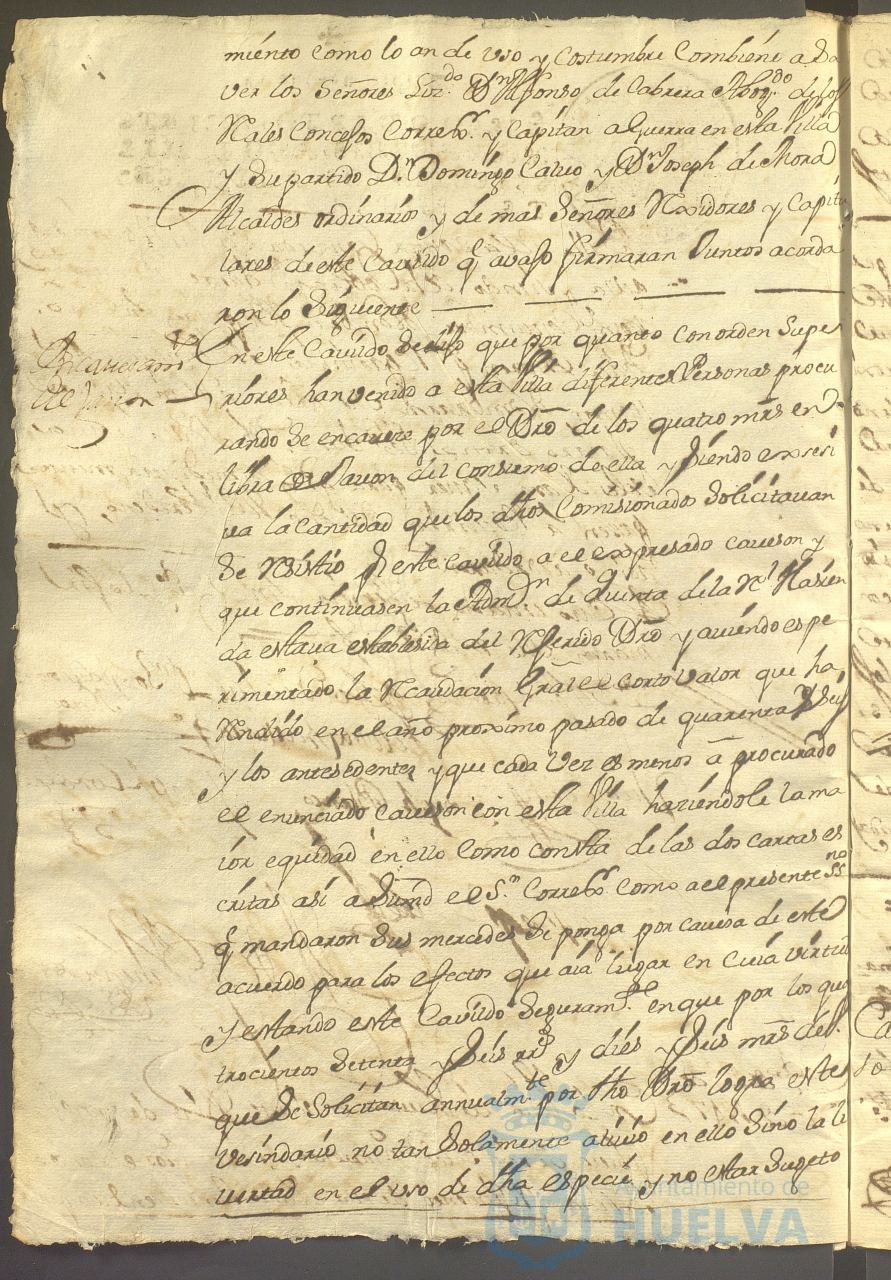 miento como lo an de uso y costumbre combiene a Sa
ver los Señores Liz.do Dn Alfonso de Cabrera Abog.do de los
Rales Concejos Correx.r y Capitan a Guerra en esta Villa
y su partido D.n Domingo Calvo y Dn Joseph de Mora
Alcaldes ordinarios y demas Señores Rexidores y Capitu
lares de este Cavildo q avajo firmaran Juntos acorda
ron lo siguiente
Encavezam.to
del Javon
En este Cavildo se dijo que por quanto con orden Supe
riores han venido a esta Villa diferentes Personas procu
rando se encaveze por el Dro de los quatro mrs en
libra de Javon del consumo de ella y siendo exsesi
va la cantidad que los dhos Comisionados solicitavan
se resistio por este Cavildo a el expresado caveson y
que continuasen la Adm.on de quenta de la Rl Hasien
da estava establesida del Referido Dro y aviendo espe
rimentado la Recaudacion Gral el corto valor que ha
Rendido en el año proximo pasado de quarenta y seis
y los antesedentes y que cada vez es menos a procurado
el enunciado caveson con esta Villa haziendole la ma
ior equidad en ello como consta de las dos cartas es
critas asi a Sumd el S.r Correx.r como a el presente ssno
q mandaron sus mercedes se ponga por cavesa de este
acuerdo para los efectos que aia lugar en cuia virtud
y estando este Cavildo seguram.te en que por los qua
trocientos setenta y seis rrs y dies y seis mrs de v.n
que se solicitan annualm.te por dho Dro logra este
vesindario no tan solamente alivio en ello sino la li
vertad en el uso de dha especie y no estar sugeto
Ayuntamiento de
HUELVA